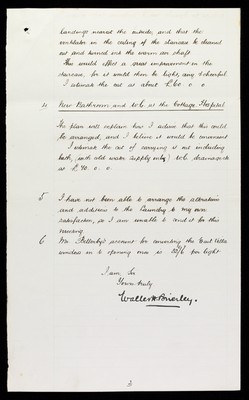 landings nearest the outside, and that the
ventilator in the ceiling of the staircase be cleaned
out and turned out the warm air shaft.
This would effect a great improvement in the
staircase, for it would then be light, airy & cheerful.
I estimate the cost at about £60. 0. 0
4 New Bathroom and W.C. at the Cottage Hospital
The plan will explain how I advise that this could
be arranged, and I believe it would be convenient
I estimate the cost of carrying it out including
bath, (with cold water supply only) W.C. drainage &c
at £40. 0. 0.
5 I have not been able to arrange the alterations
and additions to the Laundry to my own
satisfaction, so I am unable to send it for this
meeting.
6 Mr account for converting the East Villa
windows in to opening ones is 25/6 per light
I am Sir
Yours truly
Walter H Brierley.